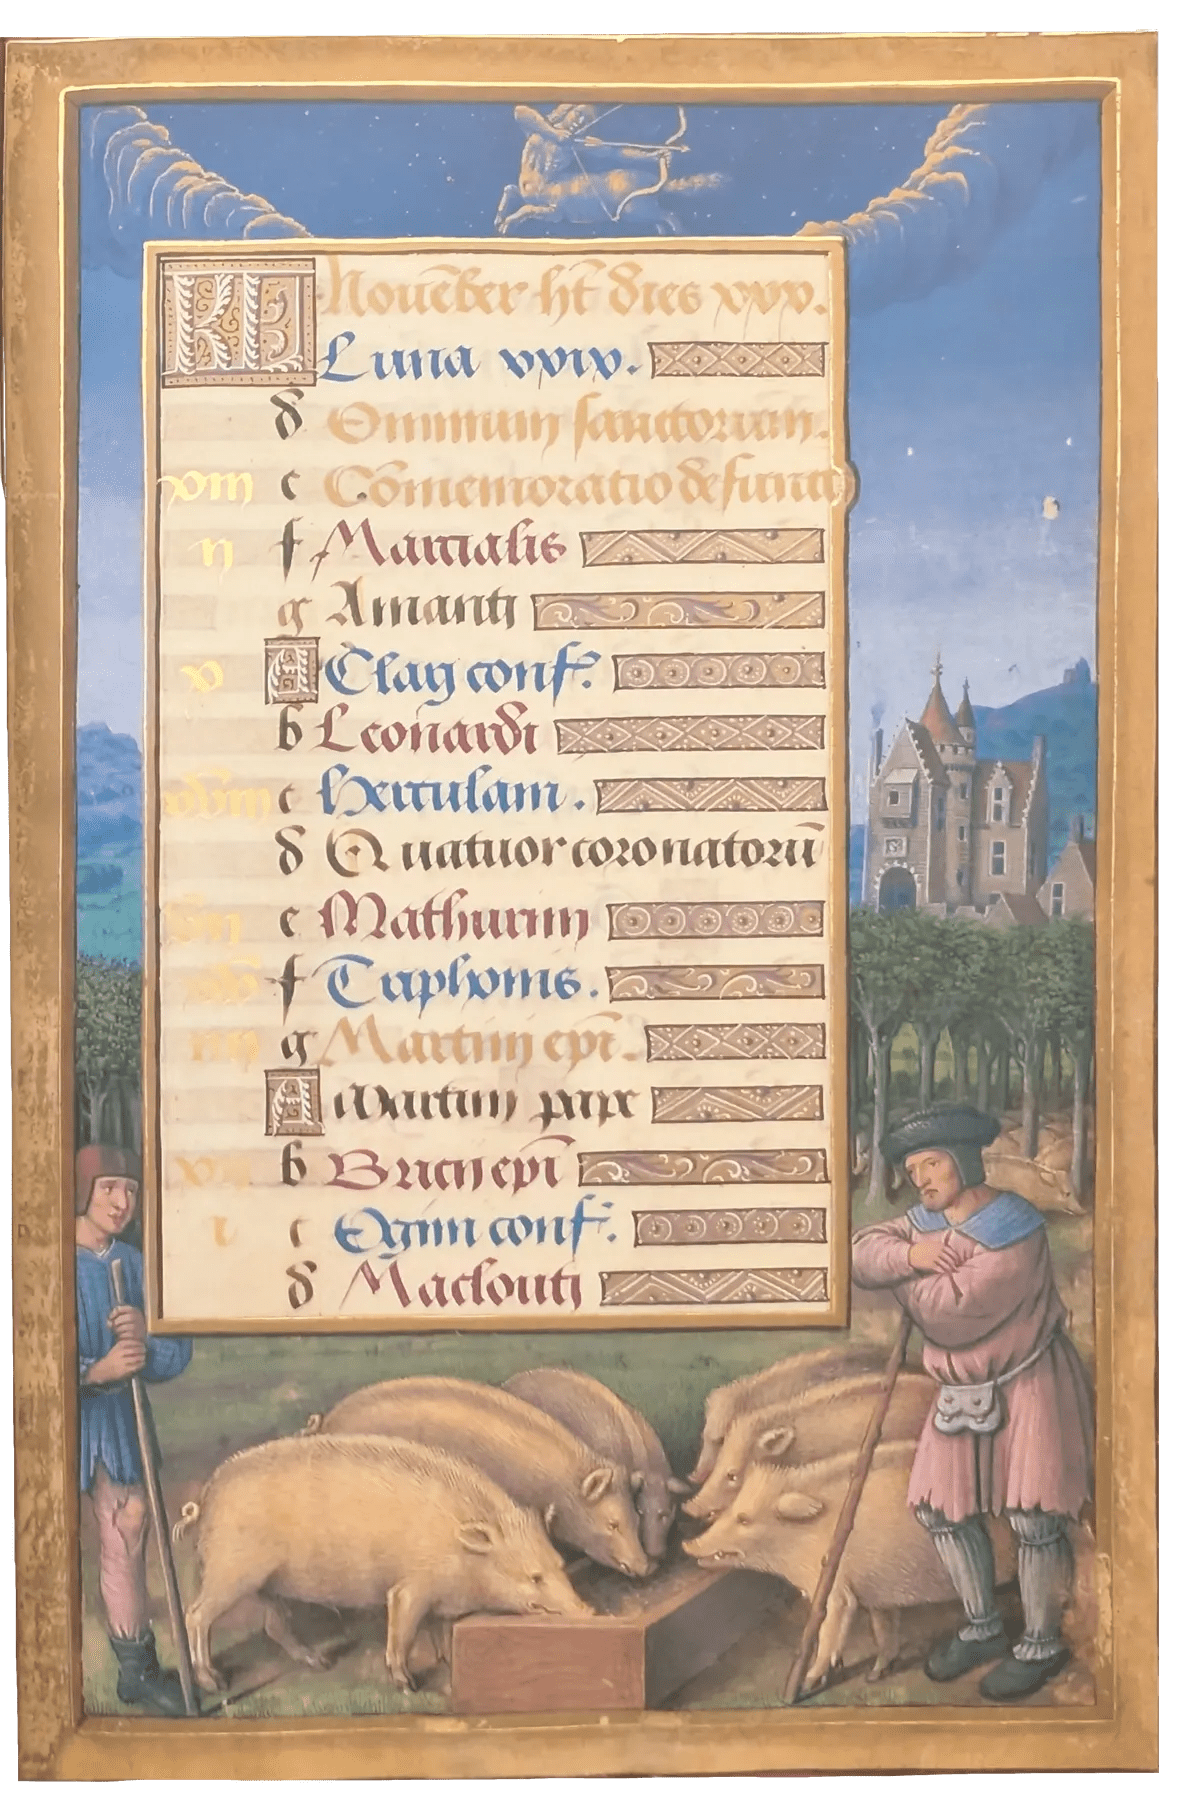 KL Nouēber ht̄ dies xxx.
Luna xxix.
d Omnium sanctorum.
xiii e Cōmemoratio defunct
ii f Marcialis
g Amanti
x A Elay conf.
b Leonardi
xviii c herculani.
d Quatuor coronatorū
vii e Mathurini
f Triphonis.
g Martini epī.
A Martini pape
b Bricii epī
i c Eginii conf.
d Macloutj